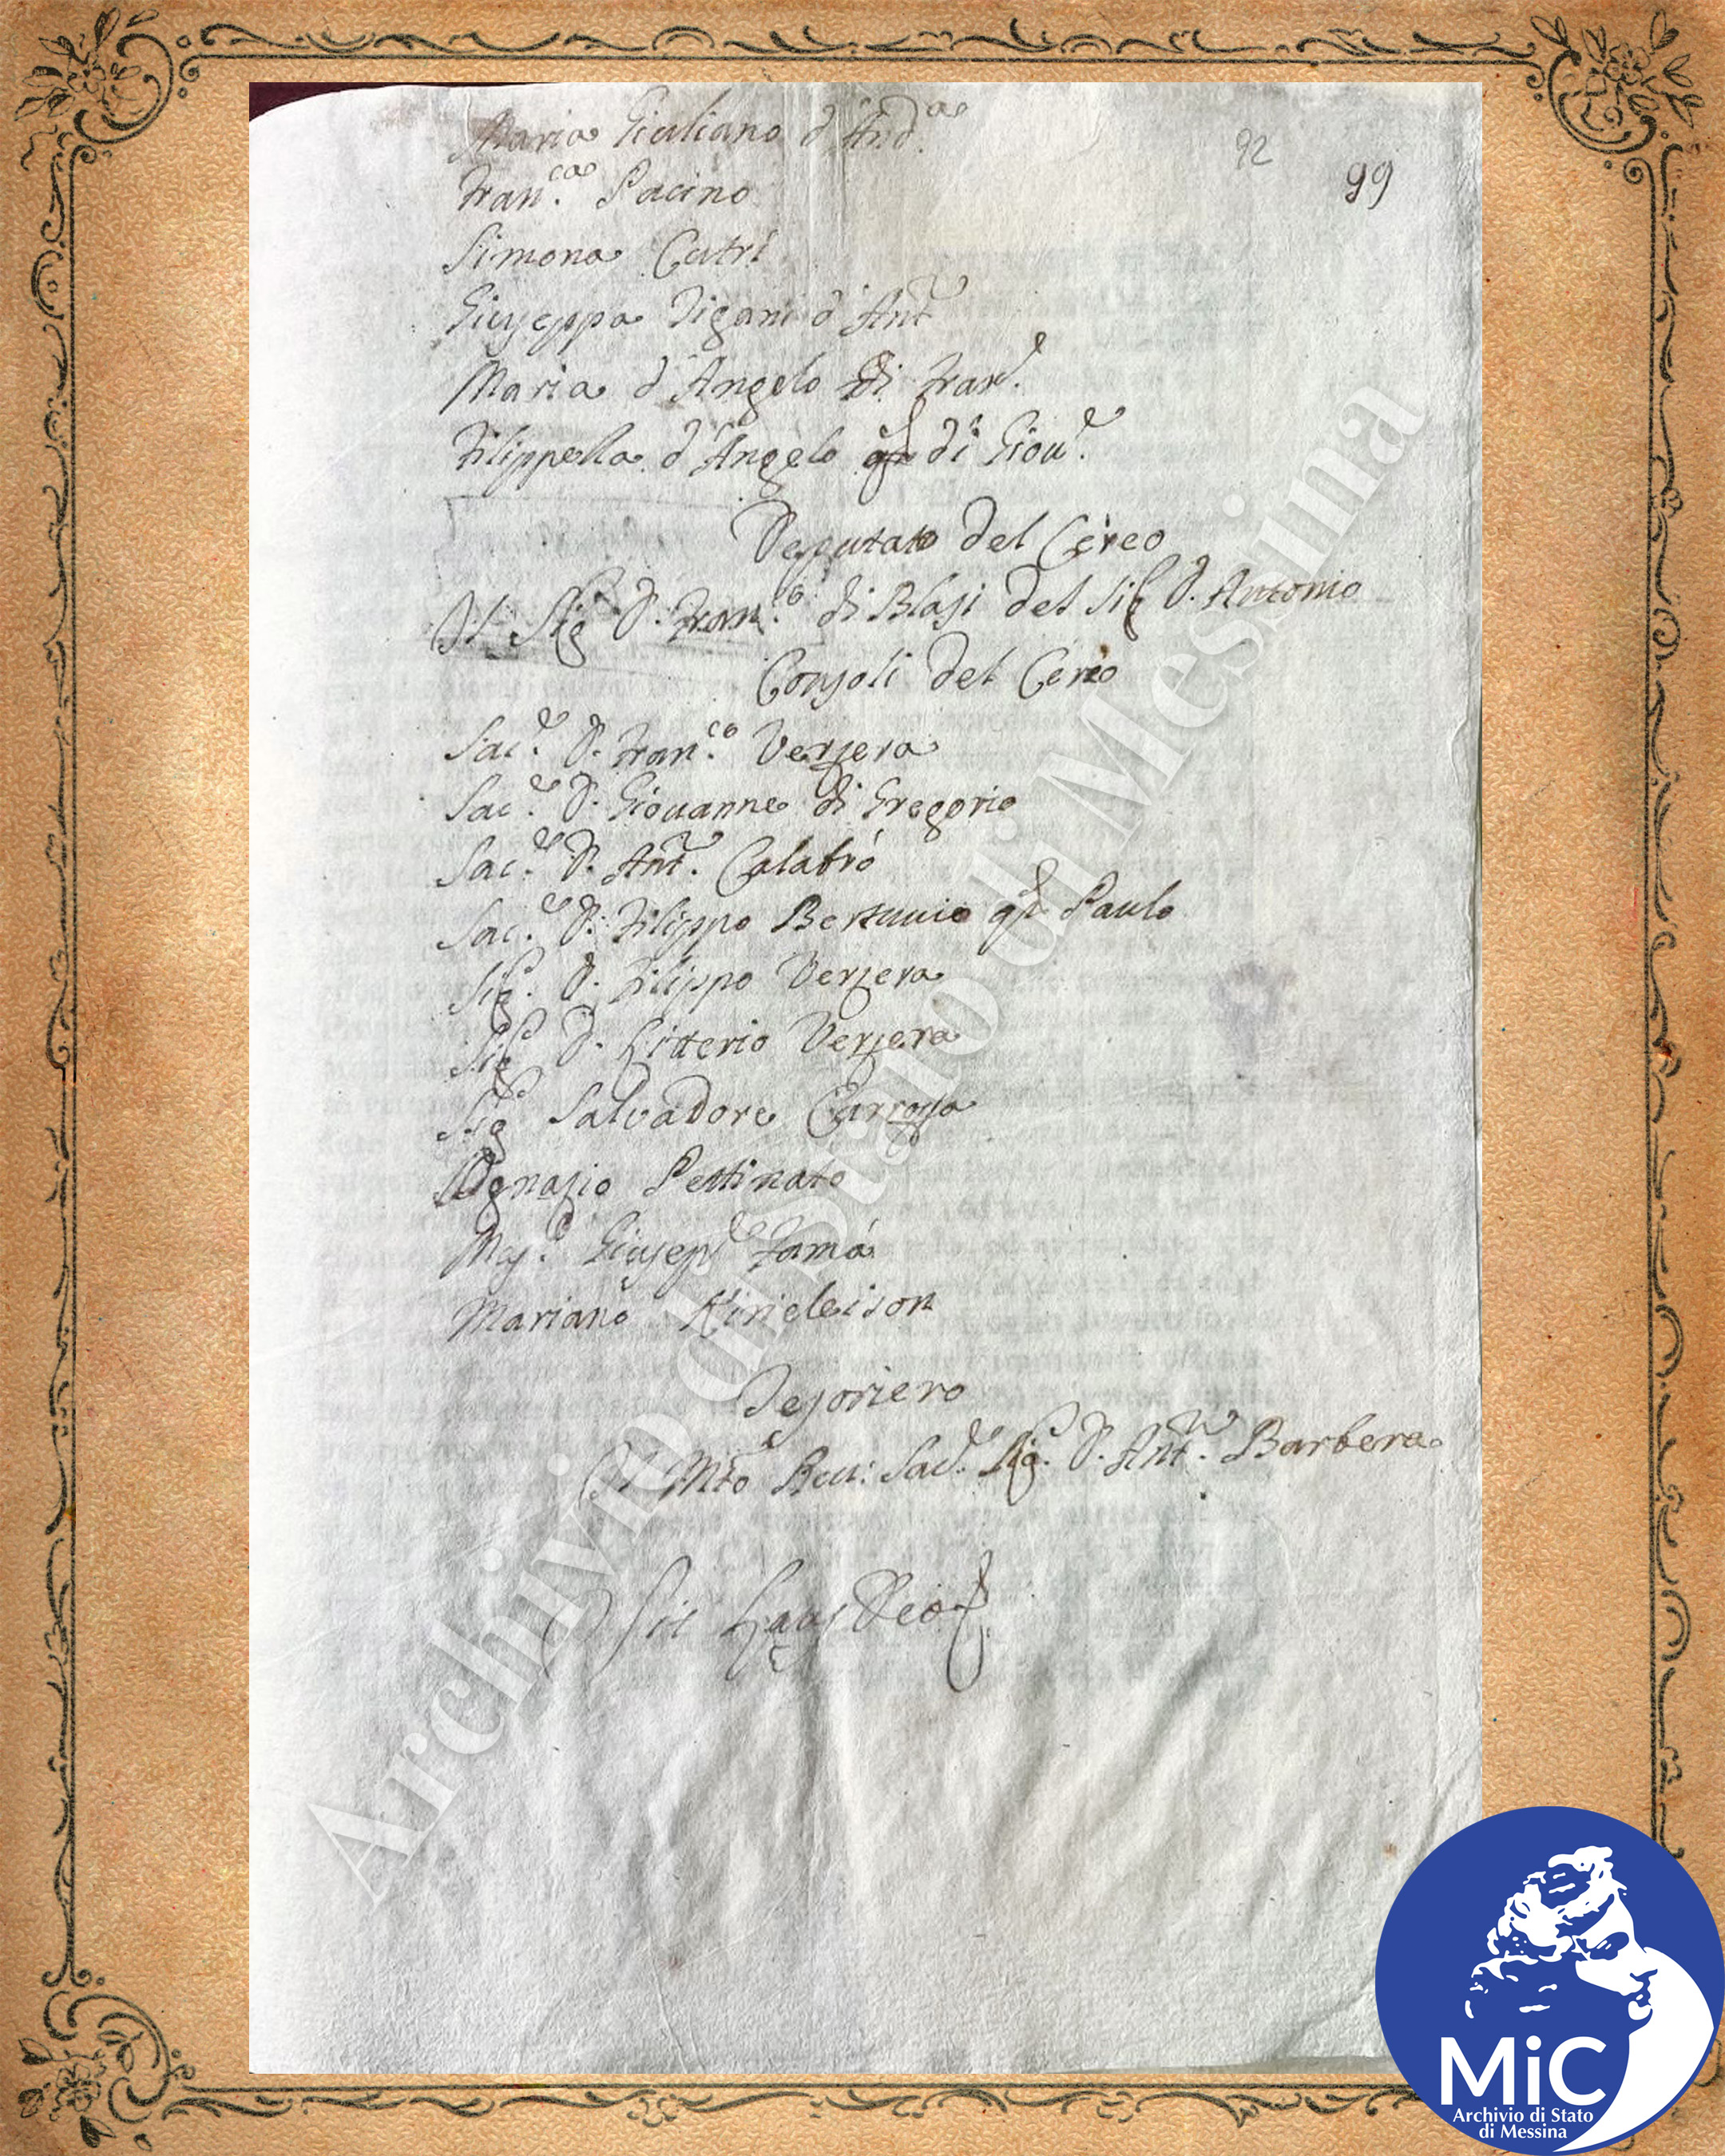 Maria Giuliano d'And.ª
92
99
Fran.ca Pacino
Simona Cutrì
Giuseppa Tigani d'Ant.
Maria d'Angelo di Fran.
Filippella d'Angelo di Giov.
Deputato del Céreo
Il Sig. D. Fran.co di Blasi del Sig. D. Antonio
Consoli del Céreo
Sac.e D. Fran.co Verzera
Sac.e D. Giovanne di Gregorio
Sac.e D. Ant. Calabró
Sac.e D. Filippo Bertuccio Paulo
Sig. D. Filippo Verzera
Sig. D. Litterio Verzera
Sig. Salvadore Carrozza
Ignazio Pettinato
Giusep.e Famá
Mariano Kirieleison
Tesoriero
Il Mto Rev: Sac. Sig. D. Ant. Barbera
Sit Laus Deo
Archivio di Stato di Messina
MiC
Archivio di Stato
di Messina